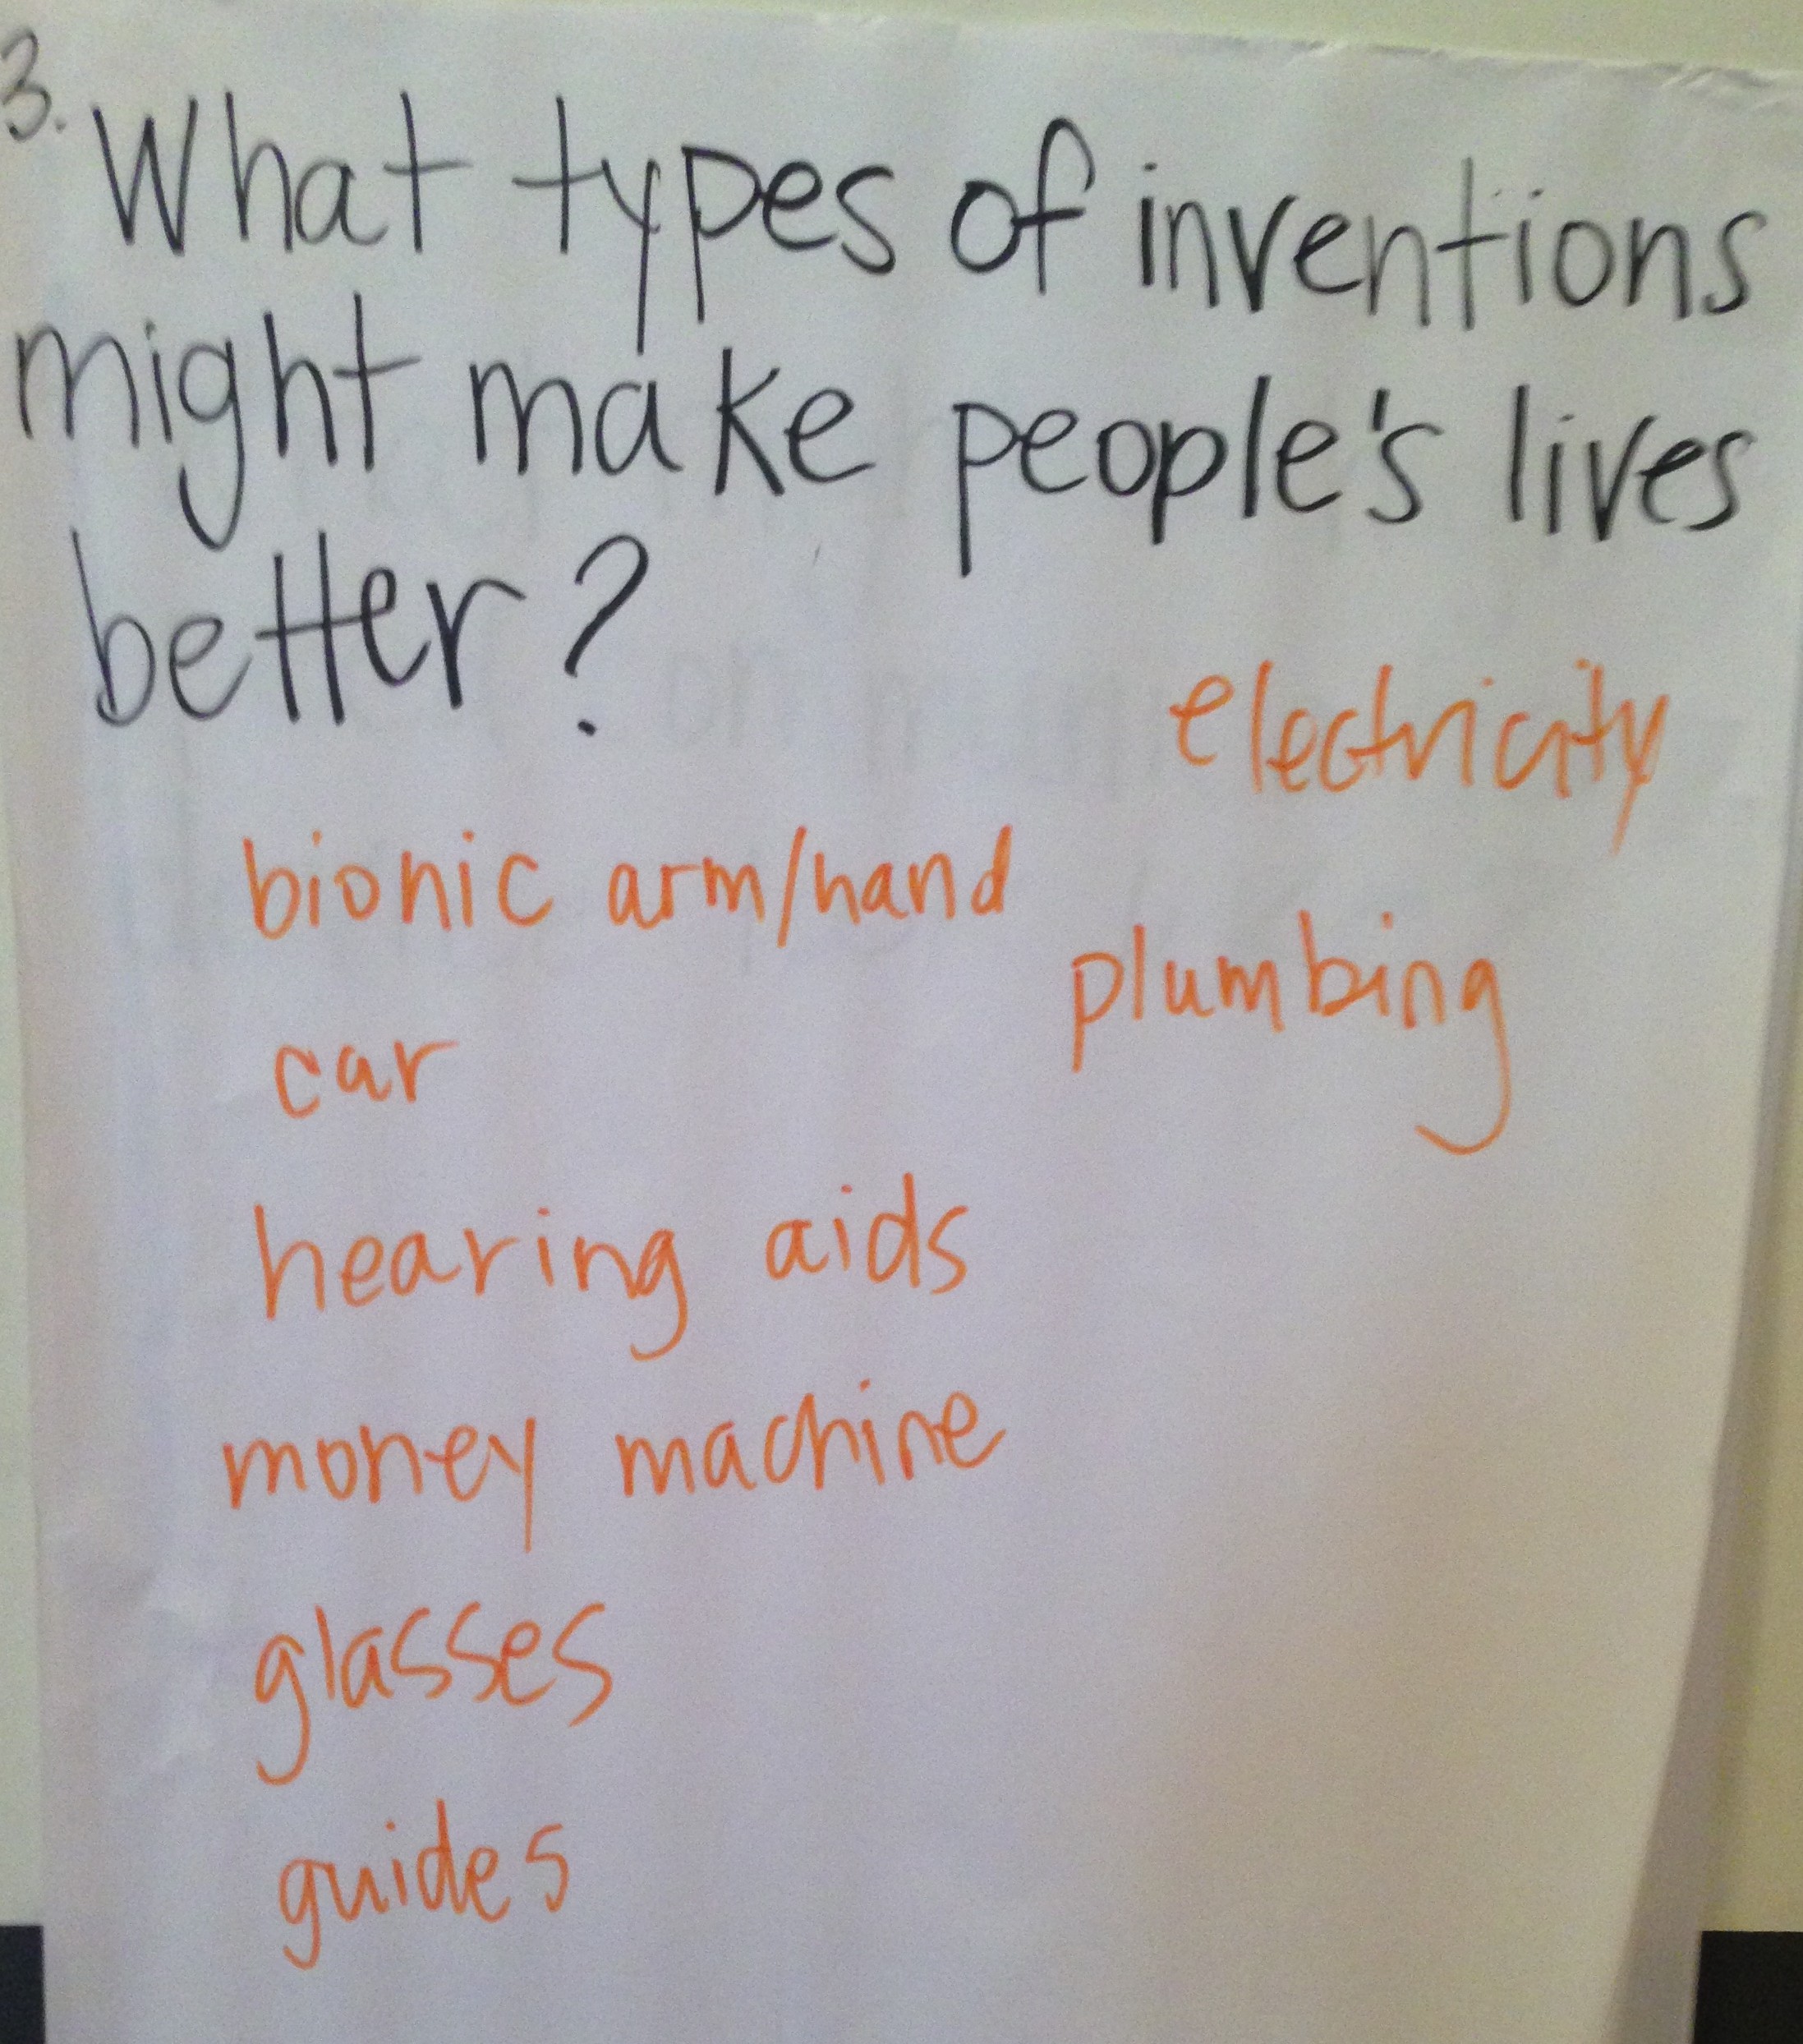 3. What types of inventions
might make people's lives
better?
electricity
bionic arm/hand
plumbing
car
hearing aids
money machine
glasses
guides